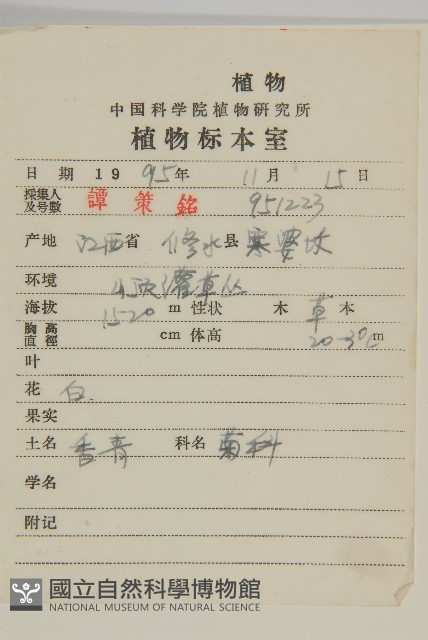 植物
中国科学院植物研究所
植物标本室
日期 1995年 11月 15日
採集人及号数 譚策銘 951223
产地 江西省 修水县 寒婆坳
环境 山顶灌草丛
海拔 15-20 m 性状 木 草 本
胸高直径 cm 体高 20-30cm
叶
花 白.
果实
土名 香青 科名 菊科
学名
附记
國立自然科學博物館
NATIONAL MUSEUM OF NATURAL SCIENCE